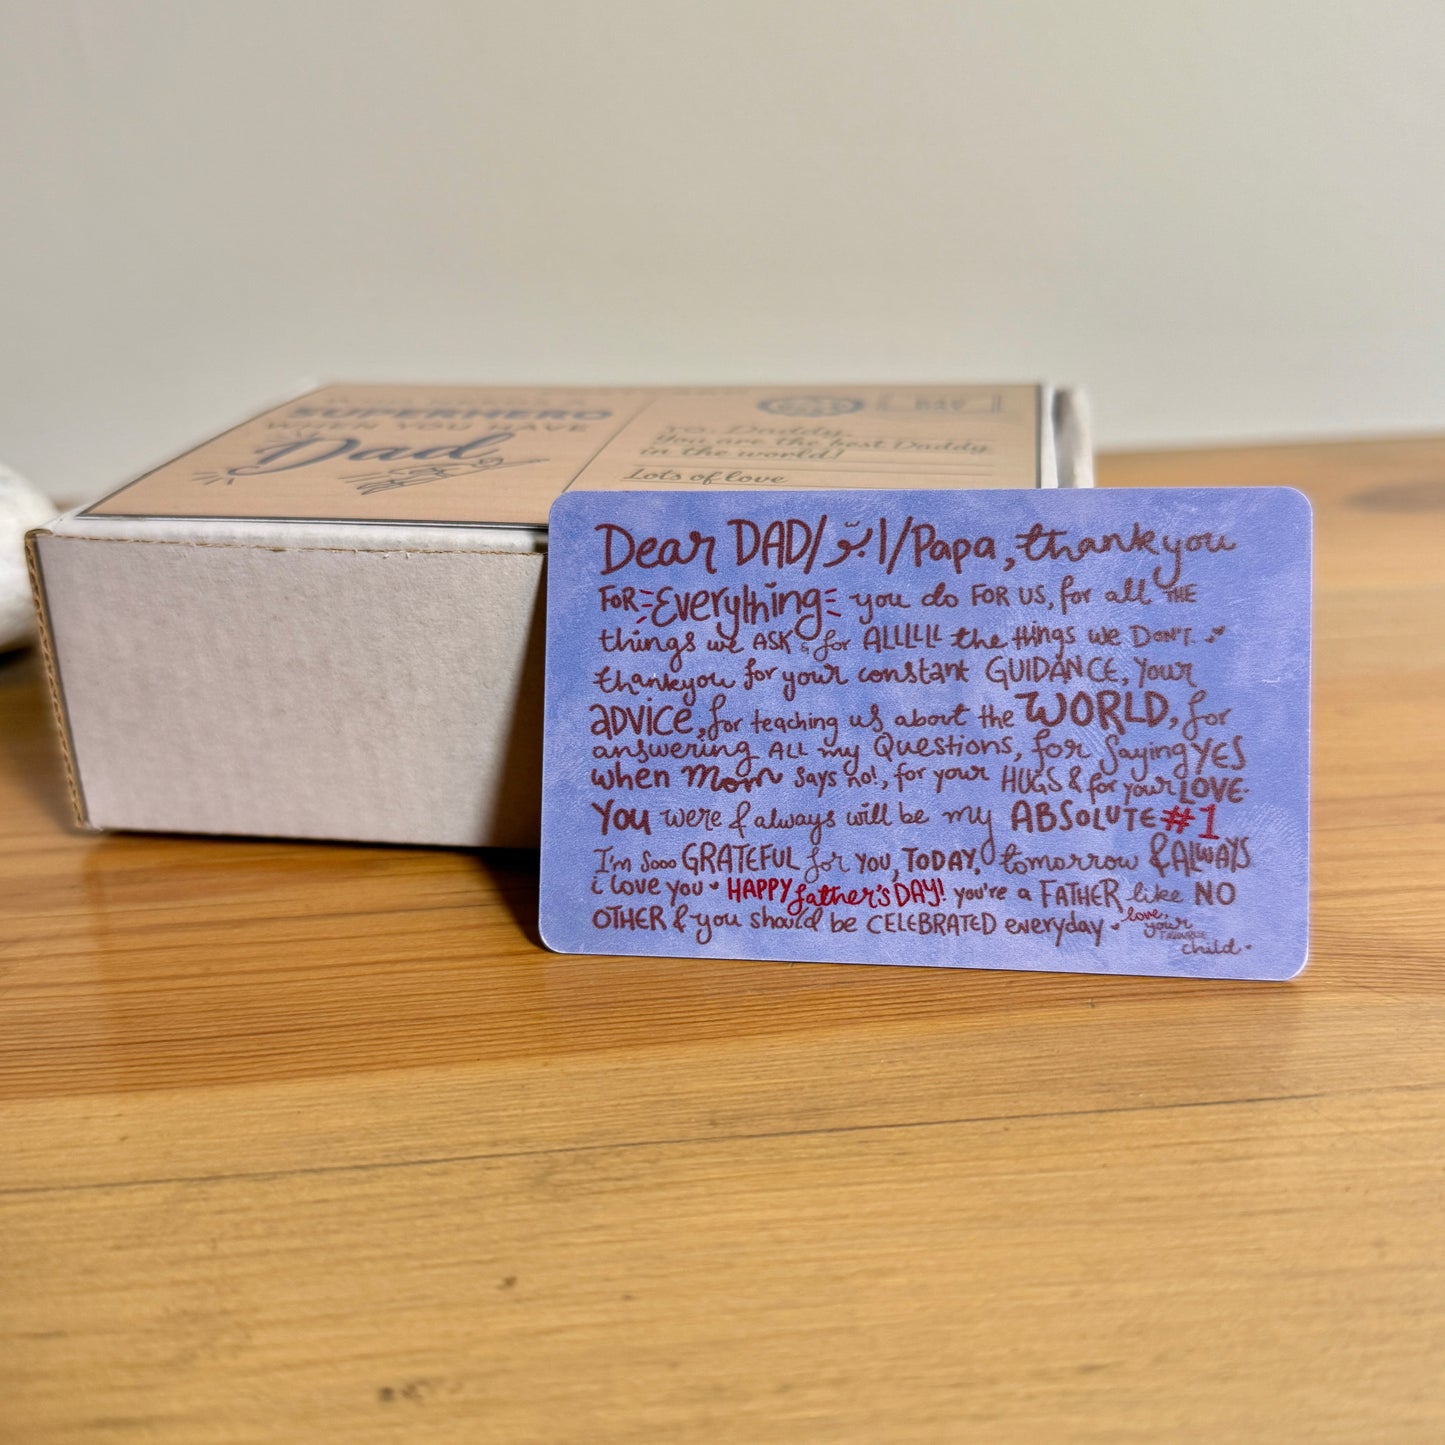 SUPERHERO
WHEN YOU HAVE
Dad
DAY
TO: Daddy,
You are the best Daddy
in the world!
Lots of love
Dear DAD/ابّو/Papa, thankyou
FOR Everything you do FOR US, for all THE
things we ASK & for ALLLLL the things we DON'T.
thankyou for your constant GUIDANCE, your
ADVICE, for teaching us about the WORLD, for
answering ALL my Questions, for saying YES
when mom says no!, for your HUGS & for your LOVE.
You were & always will be my ABSOLUTE #1
I'm sooo GRATEFUL for you, TODAY, tomorrow & ALWAYS
i love you HAPPY father's DAY! you're a FATHER like NO
OTHER & you should be CELEBRATED everyday love,
your
FAVOURITE
child